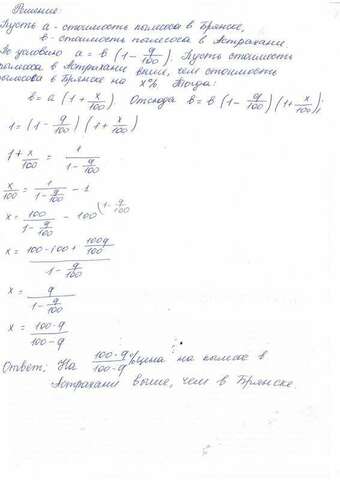 Решение.
Пусть a - стоимость пылесоса в Брянске,
b - стоимость пылесоса в Астрахани
По условию a = b (1 - q/100). Пусть стоимость
пылесоса в Астрахани выше, чем стоимость
пылесоса в Брянске на x%. Тогда:
b = a (1 + x/100). Отсюда b = b (1 - q/100)(1 + x/100);
1 = (1 - q/100)(1 + x/100)
1 + x/100 = 1/(1 - q/100)
x/100 = 1/(1 - q/100) - 1
x = 100/(1 - q/100) - 100 (1 - q/100
x = (100 - 100 + 100q/100)/(1 - q/100)
x = q/(1 - q/100)
x = 100·q/(100 - q)
Ответ: На 100·q/(100 - q) % цена на пылесос в
Астрахани выше, чем в Брянске.